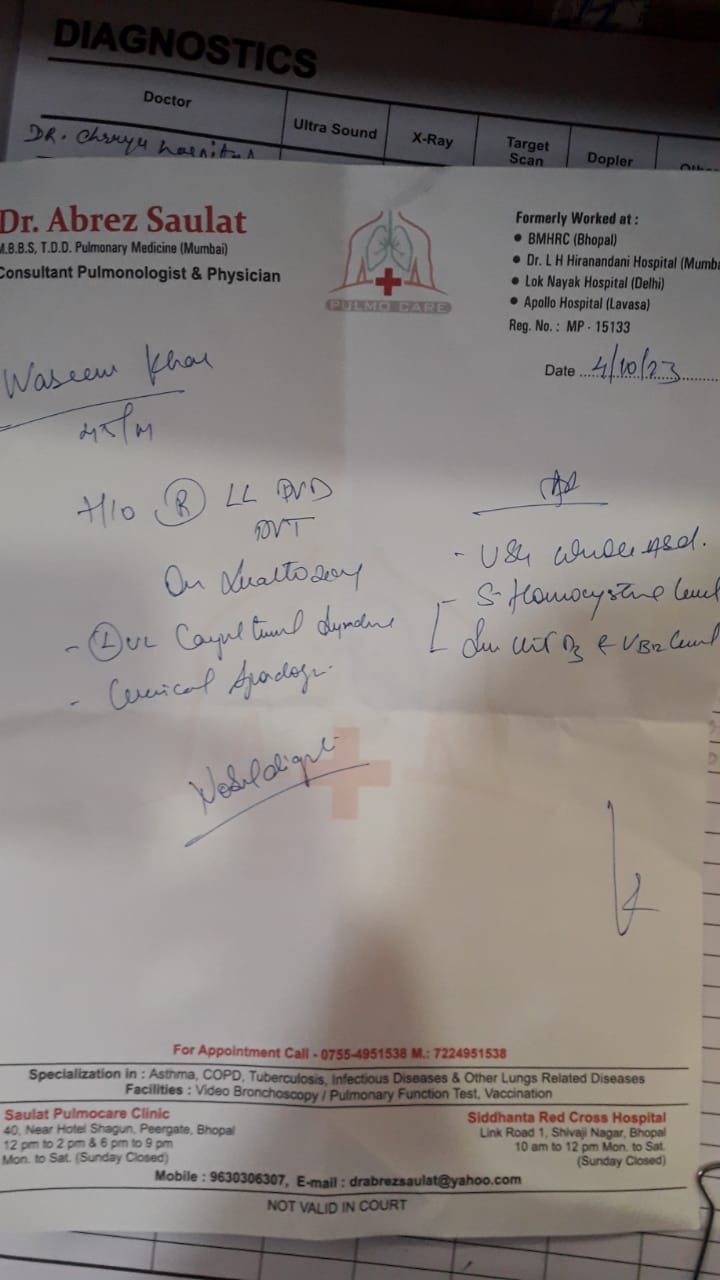 DIAGNOSTICS
Doctor
Ultra Sound
X-Ray
Target Scan
Dopler
DR.
Dr. Abrez Saulat
M.B.B.S, T.D.D. Pulmonary Medicine (Mumbai)
Consultant Pulmonologist & Physician
PULMO CARE
Formerly Worked at :
• BMHRC (Bhopal)
• Dr. L H Hiranandani Hospital (Mumba
• Lok Nayak Hospital (Delhi)
• Apollo Hospital (Lavasa)
Reg. No. : MP - 15133
Date 4/10/23
Waseem Khan
45/M
H/O (R) LL PVD
DVT
On
- (L) UL Carpal tunnel syndrome
- Cervical
Adv
- USG whole Abd.
- S. Homocysteine level
Vit D3 & VB12 level
For Appointment Call - 0755-4951538 M.: 7224951538
Specialization in : Asthma, COPD, Tuberculosis, Infectious Diseases & Other Lungs Related Diseases
Facilities : Video Bronchoscopy / Pulmonary Function Test, Vaccination
Saulat Pulmocare Clinic
40, Near Hotel Shagun, Peergate, Bhopal
12 pm to 2 pm & 6 pm to 9 pm
Mon. to Sat. (Sunday Closed)
Siddhanta Red Cross Hospital
Link Road 1, Shivaji Nagar, Bhopal
10 am to 12 pm Mon. to Sat.
(Sunday Closed)
Mobile : 9630306307, E-mail : drabrezsaulat@yahoo.com
NOT VALID IN COURT